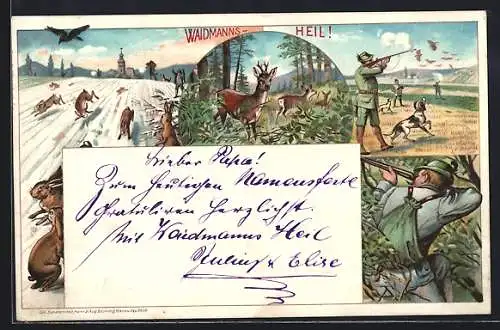 WAIDMANNS- HEIL!
Lieber Papa!
Zum heutigen Namensfeste
Gratuliren herzlichst
Mit Waidmanns Heil
& Elise